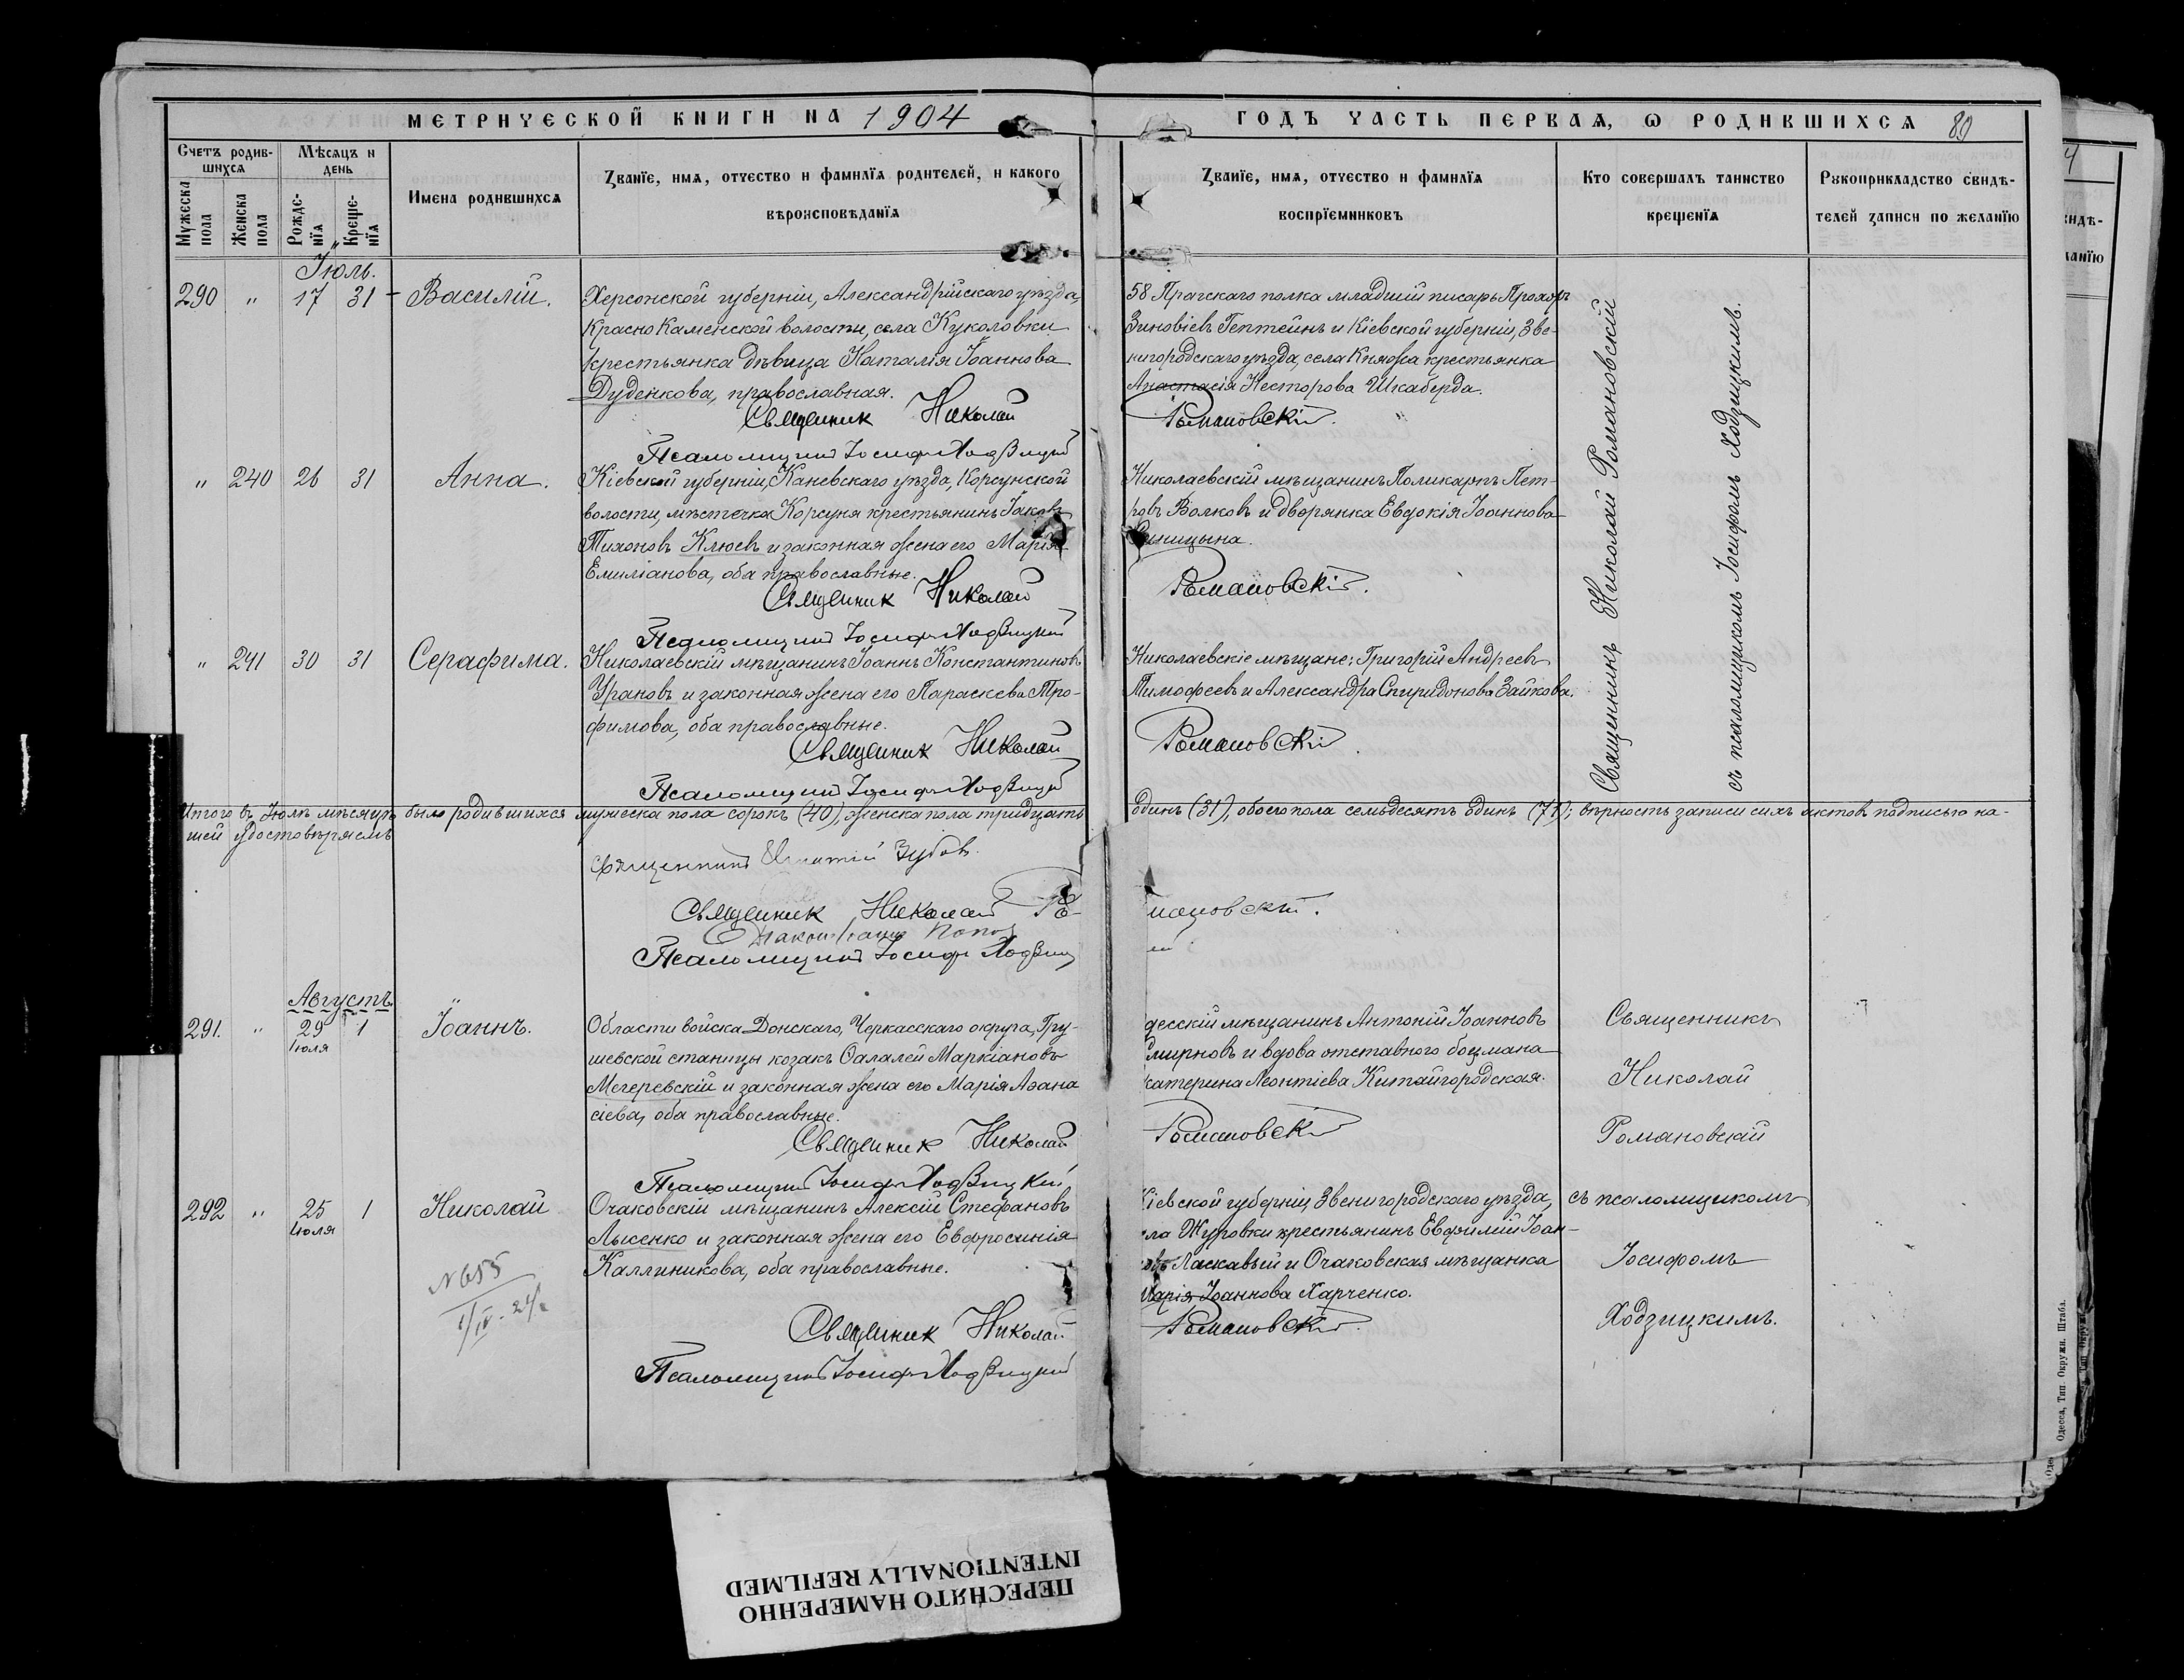 МЕТРИЧЕСКОЙ КНИГИ НА 1904
ГОДЪ ЧАСТЬ ПЕРВАѦ, Ѡ РОДИВШИХСѦ 80
Счетъ родив-
шихсѧ
Мѣсѧцъ и
день
Мужеска пола
Женска пола
Рожде-
нїѧ
Креще-
нїѧ
Имена родившихсѧ
Званїе, имѧ, отчество и фамилїѧ родителей, и какого
вѣроисповѣданїѧ
Званїе, имѧ, отчество и фамилїѧ
воспрїемниковъ
Кто совершалъ таинство
крещенїѧ
Рукоприкладство свидѣ-
телей записи по желанїю
Іюль.
290 " 17 31 Василій.
Херсонской губерніи, Александрійскаго уѣзда,
Красно Каменской волости, села Куколовки
крестьянка дѣвица Наталія Іоаннова
Дуденкова, православная.
Священик Николай
Псаломщикъ Іосифъ Ходзицкій
58 Прагскаго полка младшій писарь Прохоръ
Зиновіевъ Гептейнъ и Кіевской губерніи, Зве-
нигородскаго уѣзда, села Княжа крестьянка
Анастасія Несторова Шкаберда.
Романовскій.
Священникъ Николай Романовскій
съ псаломщикомъ Іосифомъ Ходзицкимъ.
" 240 26 31 Анна.
Кіевской губерніи, Каневскаго уѣзда, Корсунской
волости, мѣстечка Корсуня крестьянинъ Іаковъ
Тихоновъ Клюевъ и законная жена его Марія
Емиліанова, оба православные.
Священик Николай
Псаломщикъ Іосифъ Ходзицкій
Николаевскій мѣщанинъ Поликарпъ Пет-
ровъ Волковъ и дворянка Евдокія Іоаннова
Синицына.
Романовскій.
" 241 30 31 Серафима.
Николаевскій мѣщанинъ Іоаннъ Константиновъ
Урановъ и законная жена его Параскева Тро-
фимова, оба православные.
Священик Николай
Псаломщикъ Іосифъ Ходзицкій
Николаевскіе мѣщане: Григорій Андреевъ
Тимофеевъ и Александра Спиридонова Зайкова.
Романовскій.
Итого въ Іюлѣ мѣсяцѣ было родившихся мужеска пола сорокъ (40), женска пола тридцать
одинъ (31), обоего пола семьдесятъ одинъ (71); вѣрность записи сихъ актовъ подписью на-
шей удостовѣряемъ
Священникъ Зубовъ.
Священик Николай Ро-
мановскій.
Діаконъ Попов
Псаломщикъ Іосифъ Ходзиц
Августъ
291. " 29 1 Іоаннъ.
Іюля
Области войска Донскаго, Черкасскаго округа, Гру-
шевской станицы козакъ Ѳалалей Маркіановъ
Мечеревскій и законная жена его Марія Аѳана
сіева, оба православные.
Священик Николай
Псаломщикъ Іосифъ Ходзицкій
десскій мѣщанинъ Антоній Іоанновъ
Смирновъ и вдова отставного боцмана
катерина Леонтіева Китайгородская.
Романовскій
Священникъ
Николай
Романовскій
292 " 25 1 Николай
Іюля
Очаковскій мѣщанинъ Алексій Стефановъ
Лысенко и законная жена его Евфросинія
Каллиникова, оба православные.
Священик Николай
Псаломщикъ Іосифъ Ходзицкій
Кіевской губерніи, Звенигородскаго уѣзда,
ла Журовки крестьянинъ Евфимій Іоан-
овъ Ласкавый и Очаковская мѣщанка
Марія Іоаннова Харченко.
Романовскій.
съ псаломщикомъ
Іосифомъ
Ходзицкимъ.
N 655
1/IV-24г.
Одесса, Тип. Окружн. Штаба.
ПЕРЕСНЯТО НАМЕРЕННО
INTENTIONALLY REFILMED